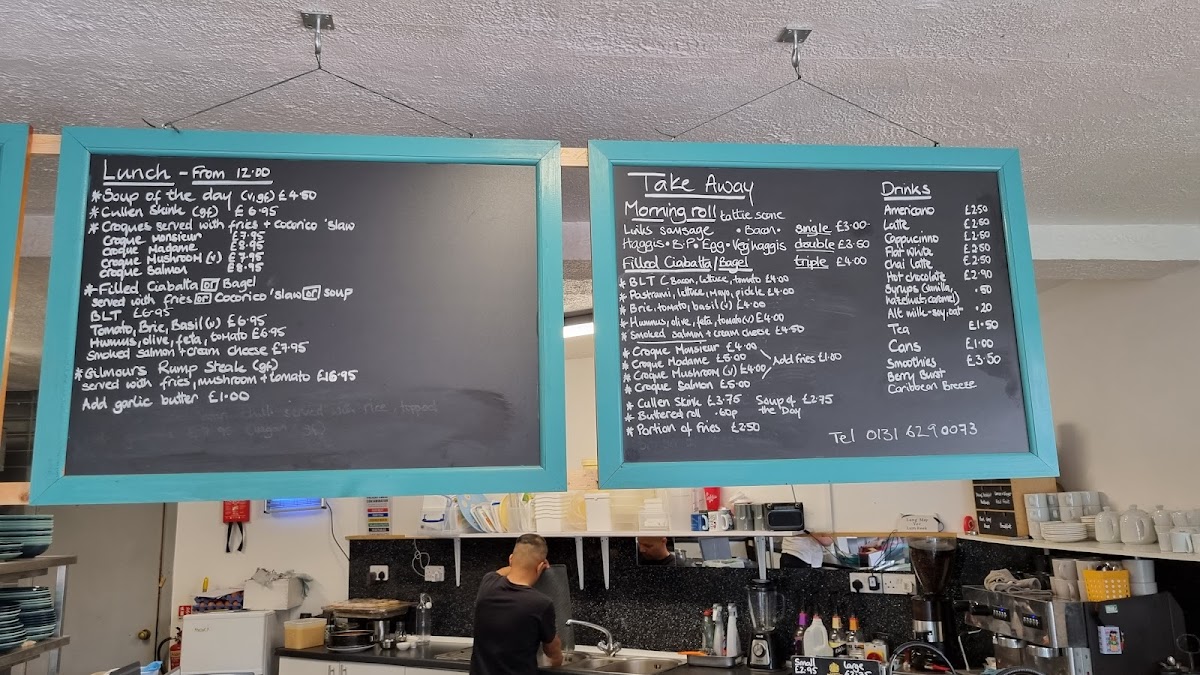 Lunch - From 12.00
*Soup of the day (v,gf) £4.50
*Cullen Skink (gf) £6.95
*Croques served with fries + cocorico 'slaw
Croque Monsieur £7.95
Croque Madame £8.95
Croque Mushroom (v) £7.95
Croque Salmon £8.95
*Filled Ciabatta or Bagel
served with fries or Cocorico 'slaw or soup
BLT £6.95
Tomato, Brie, Basil (v) £6.95
Humus, olive, feta, tomato £6.95
Smoked salmon + cream cheese £7.95
*Gilmours Rump Steak (gf)
served with fries, mushroom + tomato £16.95
Add garlic butter £1.00
Take Away
Morning roll tattie scone
Links sausage • Bacon •
Haggis • B.P. Egg • Veg haggis
single £3.00
double £3.60
triple £4.00
Filled Ciabatta/Bagel
* BLT (Bacon, lettuce, tomato £4.00
* Pastrami, lettuce, Mayo, pickle £4.00
* Brie, tomato, basil (v) £4.00
* Humus, olive, feta, tomato (v) £4.00
* Smoked salmon + cream cheese £4.50
* Croque Monsieur £4.00
* Croque Madame £5.00
* Croque Mushroom (v) £4.00
* Croque Salmon £5.00
Add fries £1.00
* Cullen Skink £3.75 Soup of the Day £2.75
* Buttered roll .60p
* Portion of Fries £2.50
Drinks
Americano £2.50
Latte £2.50
Cappuccino £2.50
Flat White £2.50
Chai Latte £2.50
Hot chocolate £2.90
Syrups (vanilla, hazelnut, caramel) .50
Alt milk - soy, oat .20
Tea £1.50
Cans £1.00
Smoothies £3.50
Berry Burst
Caribbean Breeze
Tel 0131 6290073
Small £2.95
large